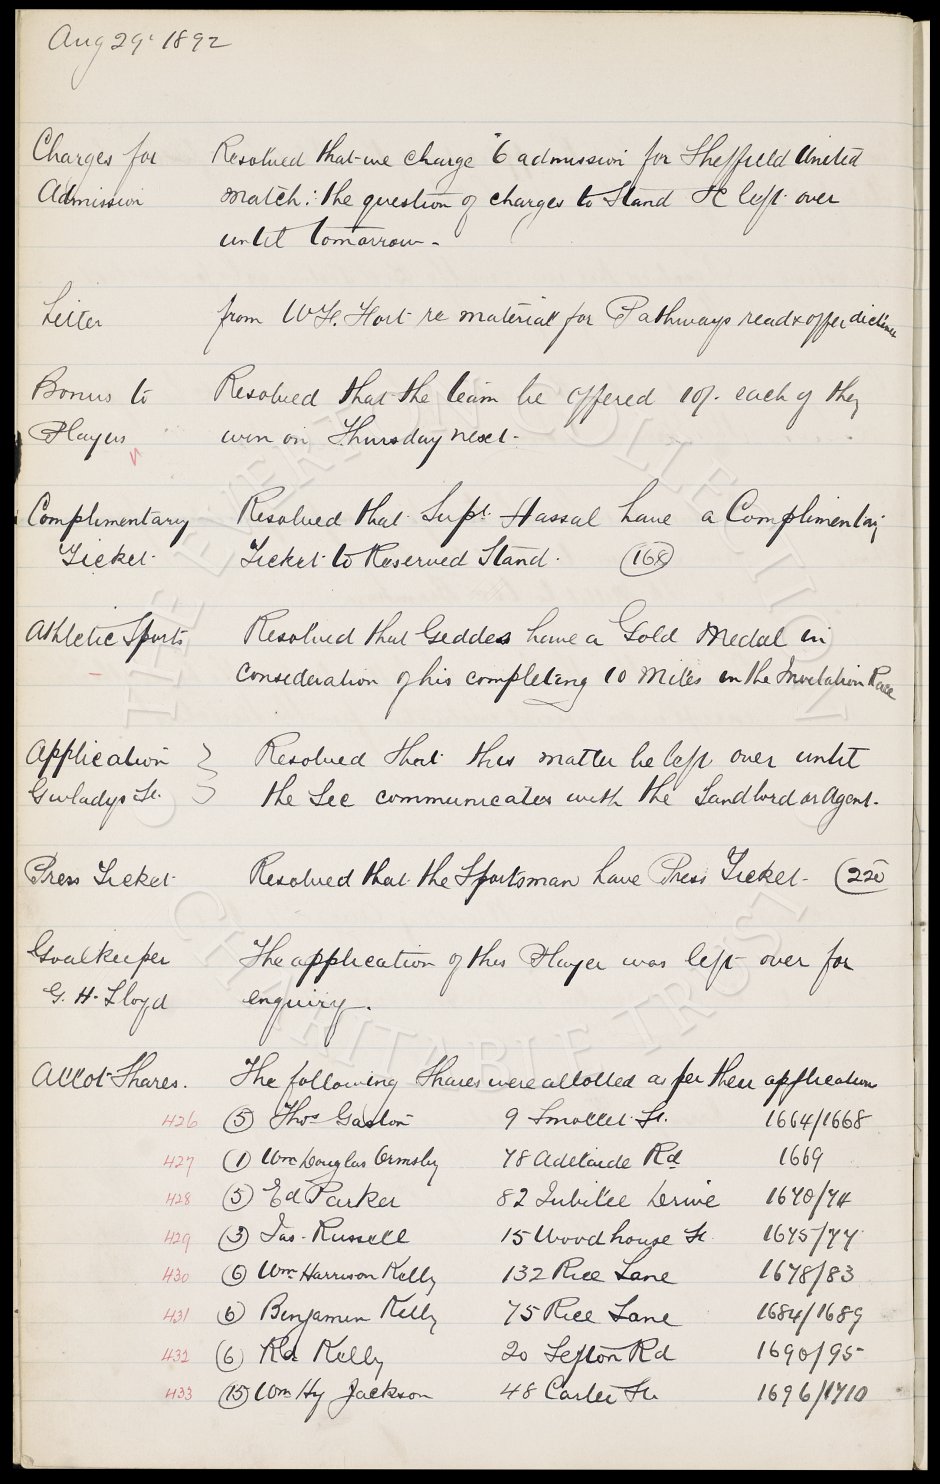 Aug 29 1892
Charges for Resolved that we charge "6 admission for Sheffield United
Admission match: the question of charges to Stand &c left over
until tomorrow.
Letter from W.H. Hort re material for Pathways read & offer declined
Bonus to Resolved that the team be offered 10/- each if they
Players win on Thursday next.
Complimentary Resolved that Supt. Hassal have a Complimentary
Ticket. Ticket to Reserved Stand. 168
Athletic Sports Resolved that Geddes have a Gold Medal in
consideration of his completing 10 Miles in the Invitation Race
Application Resolved that this matter be left over until
Gwladys St. the Sec communicates with the Landlord or Agent.
Press Ticket Resolved that the Sportsman have Press Ticket. 220
Goalkeeper The application of this Player was left over for
G. H. Lloyd enquiry.
Allot Shares. The following Shares were allotted as per their application
426 (5) Thos Gaston 9 Smollet St. 1664/1668
427 (1) Wm Douglas Ormsby 78 Adelaide Rd 1669
428 (5) Ed Parker 82 Jubilee Drive 1670/74
429 (3) Jas. Russell 15 Woodhouse St. 1675/77
430 (6) Wm Harrison Kelly 132 Rice Lane 1678/83
431 (6) Benjamin Kelly 75 Rice Lane 1684/1689
432 (6) Rd. Kelly 20 Sefton Rd 1690/95
433 (15) Wm Hy Jackson 48 Carter St. 1696/1710
THE EVERTON COLLECTION
CHARITABLE TRUST